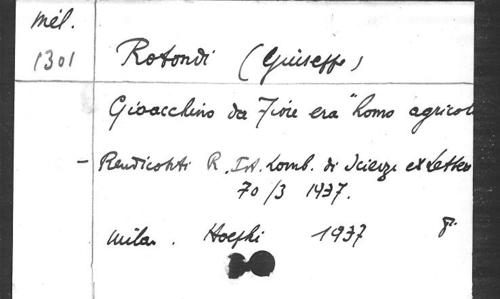 Mél.
1301
Rotondi (Giuseppe)
Gioacchino da Fiore era "homo agricol
- Rendiconti R. Ist. Lomb. di Scienze e Lettere
70/3 1937.
Milan. Hoepli 1937